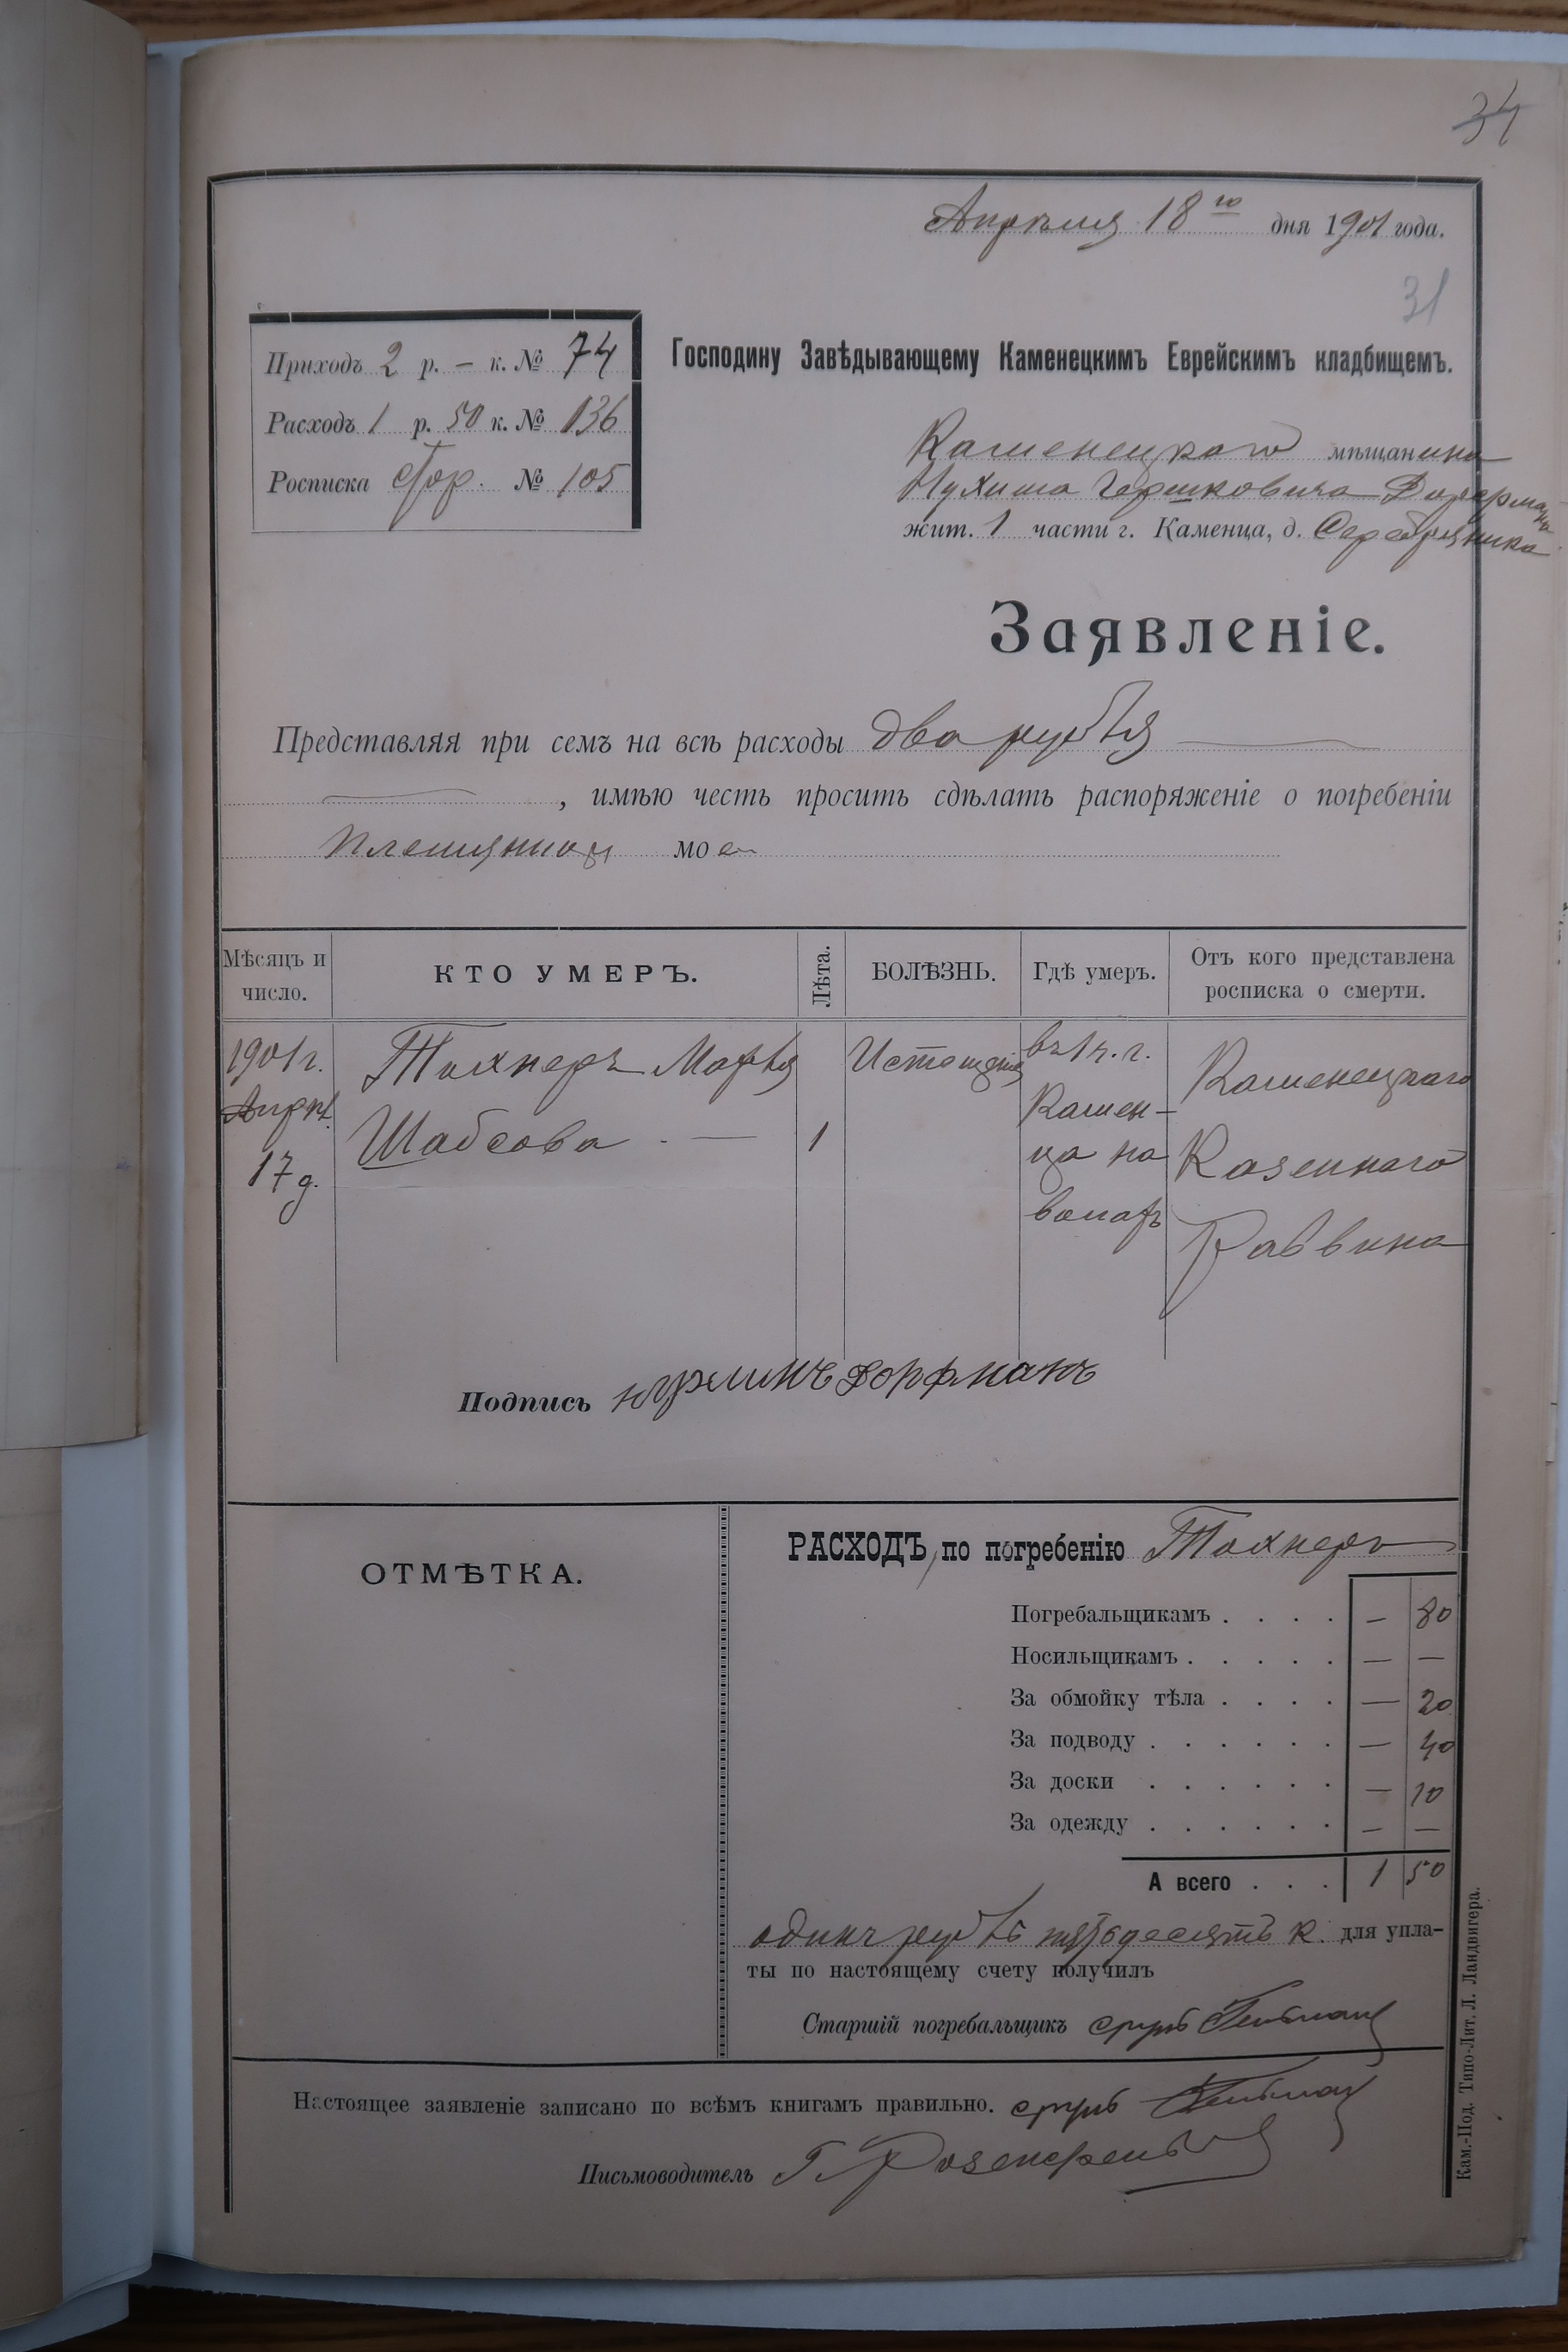 34
Апрѣля 18го дня 1901 года.
31
Приходъ 2 р. – к. № 74
Расходъ 1 р. 50 к. № 136
Росписка № 105
Господину Завѣдывающему Каменецкимъ Еврейскимъ кладбищемъ.
Каменецкаго мѣщанина
Нухима Гершковича Дорфмана
жит. 1 части г. Каменца, д. Серебряника
Заявленіе.
Представляя при семъ на всѣ расходы два рубля
, имѣю честь просить сдѣлать распоряженіе о погребеніи
племянницы моей
Мѣсяцъ и число.
КТО УМЕРЪ.
Лѣта.
БОЛѢЗНЬ.
Гдѣ умеръ.
Отъ кого представлена росписка о смерти.
1901 г. Апрѣл. 17 д.
Тохнеръ Марья Шабсова – 1
Истощенія
въ 1 ч. г. Каменца на
Каменецкаго Казеннаго Раввина
Подпись Нухимъ Дорфманъ
ОТМѢТКА.
РАСХОДЪ, по погребенію Тохнеръ
Погребальщикамъ . . . . – 80
Носильщикамъ . . . . . – –
За обмойку тѣла . . . . – 20
За подводу . . . . . . – 40
За доски . . . . . . – 10
За одежду . . . . . . – –
А всего . . . 1 50
одинъ рубль пятьдесятъ к. для упла-
ты по настоящему счету получилъ
Старшій погребальщикъ
Настоящее заявленіе записано по всѣмъ книгамъ правильно.
Письмоводитель Г. Розенфельд
Кам.-Под. Типо-Лит. Л. Ландвигера.